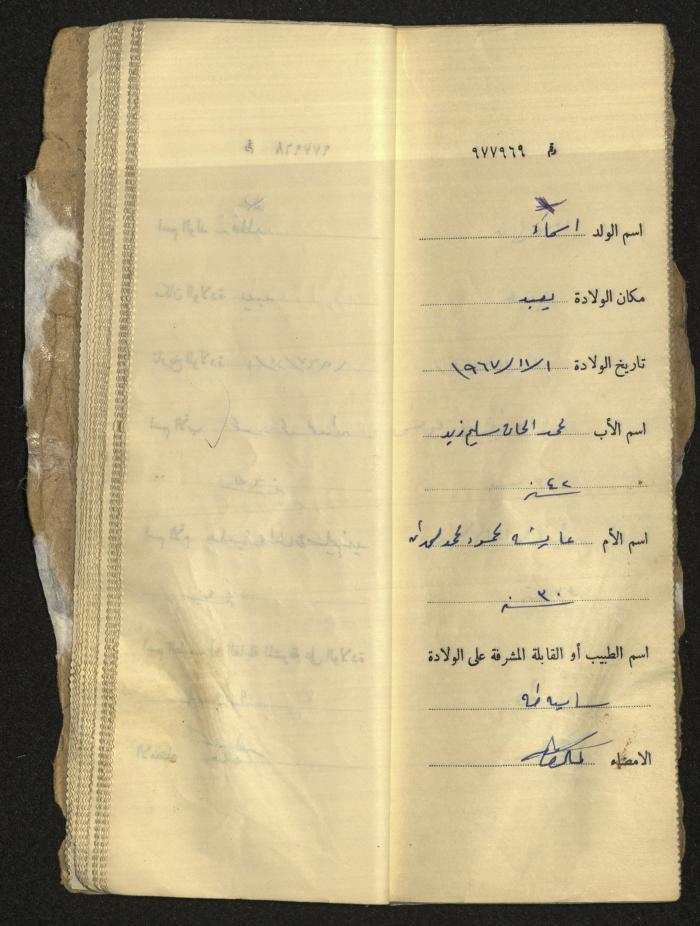 رقم ٩٧٧٩٦٩
اسم الولد اسماء
مكان الولادة يعبد
تاريخ الولادة ١/١١/١٩٦٧
اسم الأب محمد الحاج سليم زيد
٤٢ سنة
اسم الأم عايشه محمود محمد
٣٠ سنة
اسم الطبيب أو القابلة المشرفة على الولادة
الامضاء